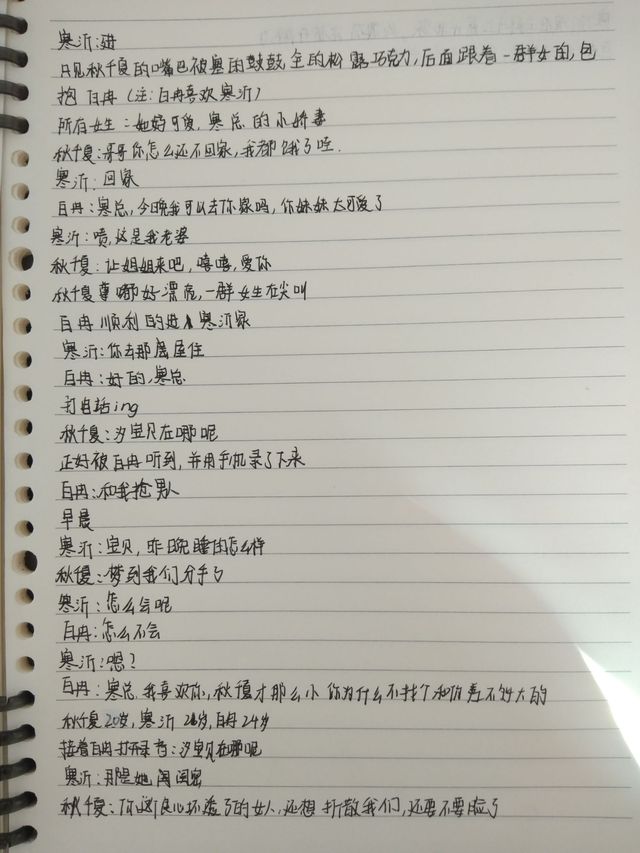 寒沂:进
只见秋千夏的嘴巴被塞的鼓鼓,全的松露巧克力,后面跟着一群女的,包
抱白冉(注:白冉喜欢寒沂)
所有女生:她好可爱,寒总的小娇妻
秋千夏:哥哥你怎么还不回家,我都饿了哇.
寒沂:回家
白冉:寒总,今晚我可以去你家吗,你妹妹太可爱了
寒沂:啧,这是我老婆
秋千夏:让姐姐来吧,嘻嘻,爱你
秋千夏尊嘟好漂亮,一群女生在尖叫
白冉顺利的进入寒沂家
寒沂:你去那屋住
白冉:好的,寒总
打电话ing
秋千夏:汐宝贝在哪呢
正好被白冉听到,并用手机录了下来
白冉:和我抢男人
早晨
寒沂:宝贝,昨晚睡的怎么样
秋千夏:梦到我们分手了
寒沂:怎么会呢
白冉:怎么不会
寒沂:嗯?
白冉:寒总,我喜欢你,秋千夏才那么小 你为什么不找个和你差不多大的
秋千夏20岁,寒沂 岁,白冉24岁
接着白冉打开录音:汐宝贝在哪呢
寒沂:那是她闺闺密
秋千夏:你这良心坏透了的女人,还想拆散我们,还要不要脸了